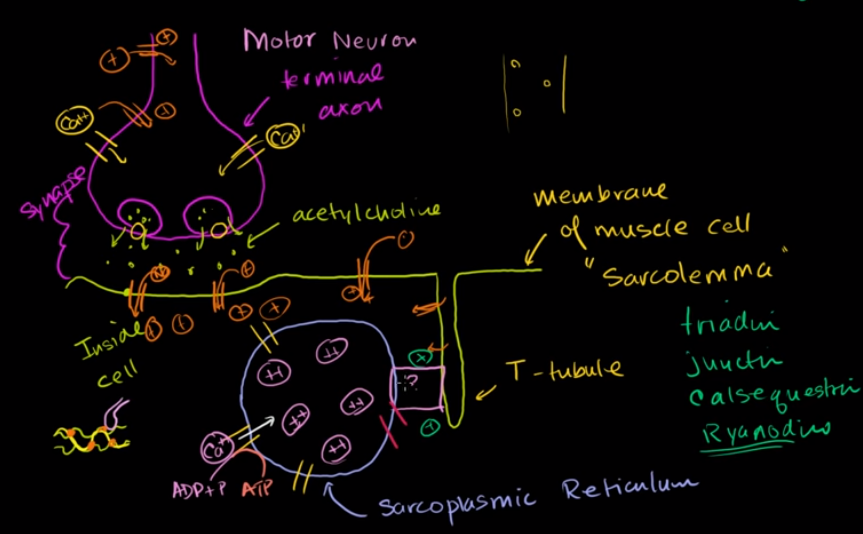 Motor Neuron
terminal
axon
Ca++
Ca++
Synapse
acetylcholine
membrane
of muscle cell
"Sarcolemma"
Inside
cell
T-tubule
triadin
junctin
calsequestrin
Ryanodine
Ca++
ADP+P ATP
Sarcoplasmic Reticulum
+
+
+
+
+
+
+
+
+
+
+
++
++
++
++
++
?